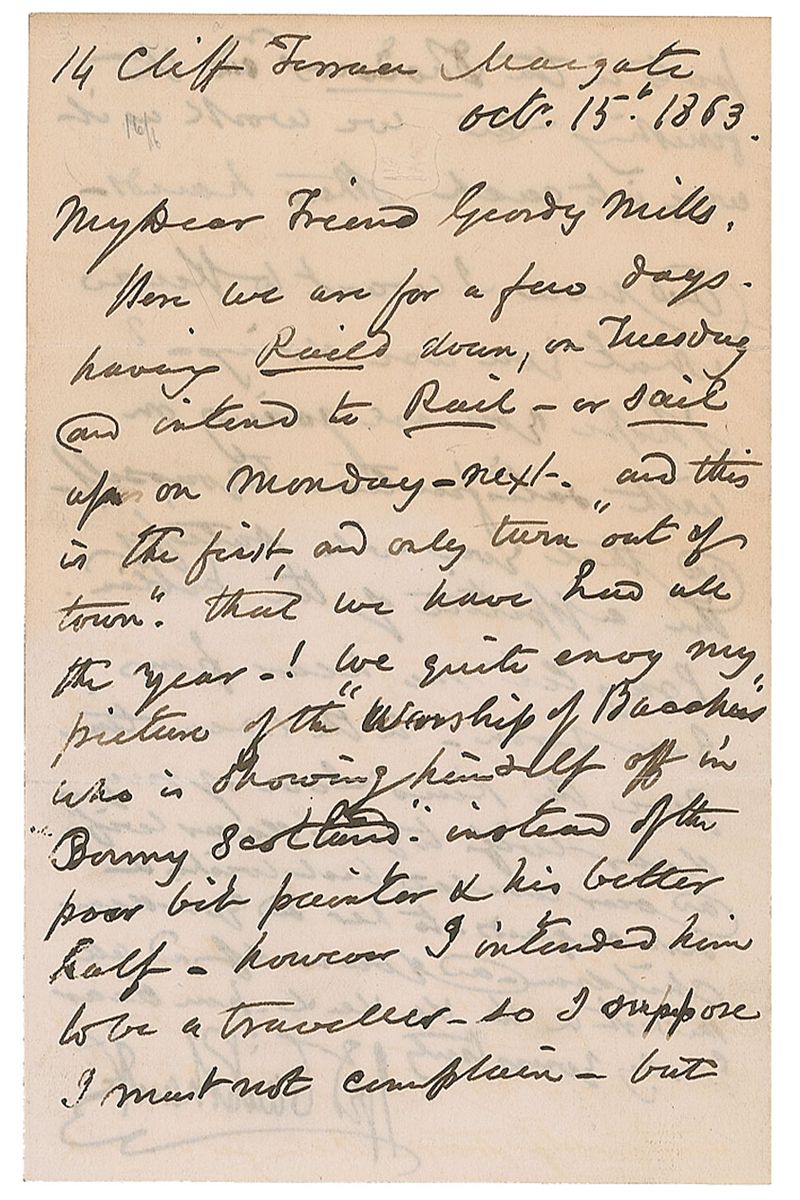 14 Cliff Terrace Margate
Octr. 15th 1863.
My Dear Friend Geordy Mills,
Here we are for a few days.
having Raild down, on Tuesday
and intend to Rail - or sail
up on Monday - next -. and this
is the first, and only turn "out of
town". that we have had all
the year -! We quite envy my
picture of the "Worship of Bacchus"
who is showing himself off in
"Bonny Scotland". instead of the
poor bit painter & his better
half - however I intended him
to be a traveller - so I suppose
I must not complain - but